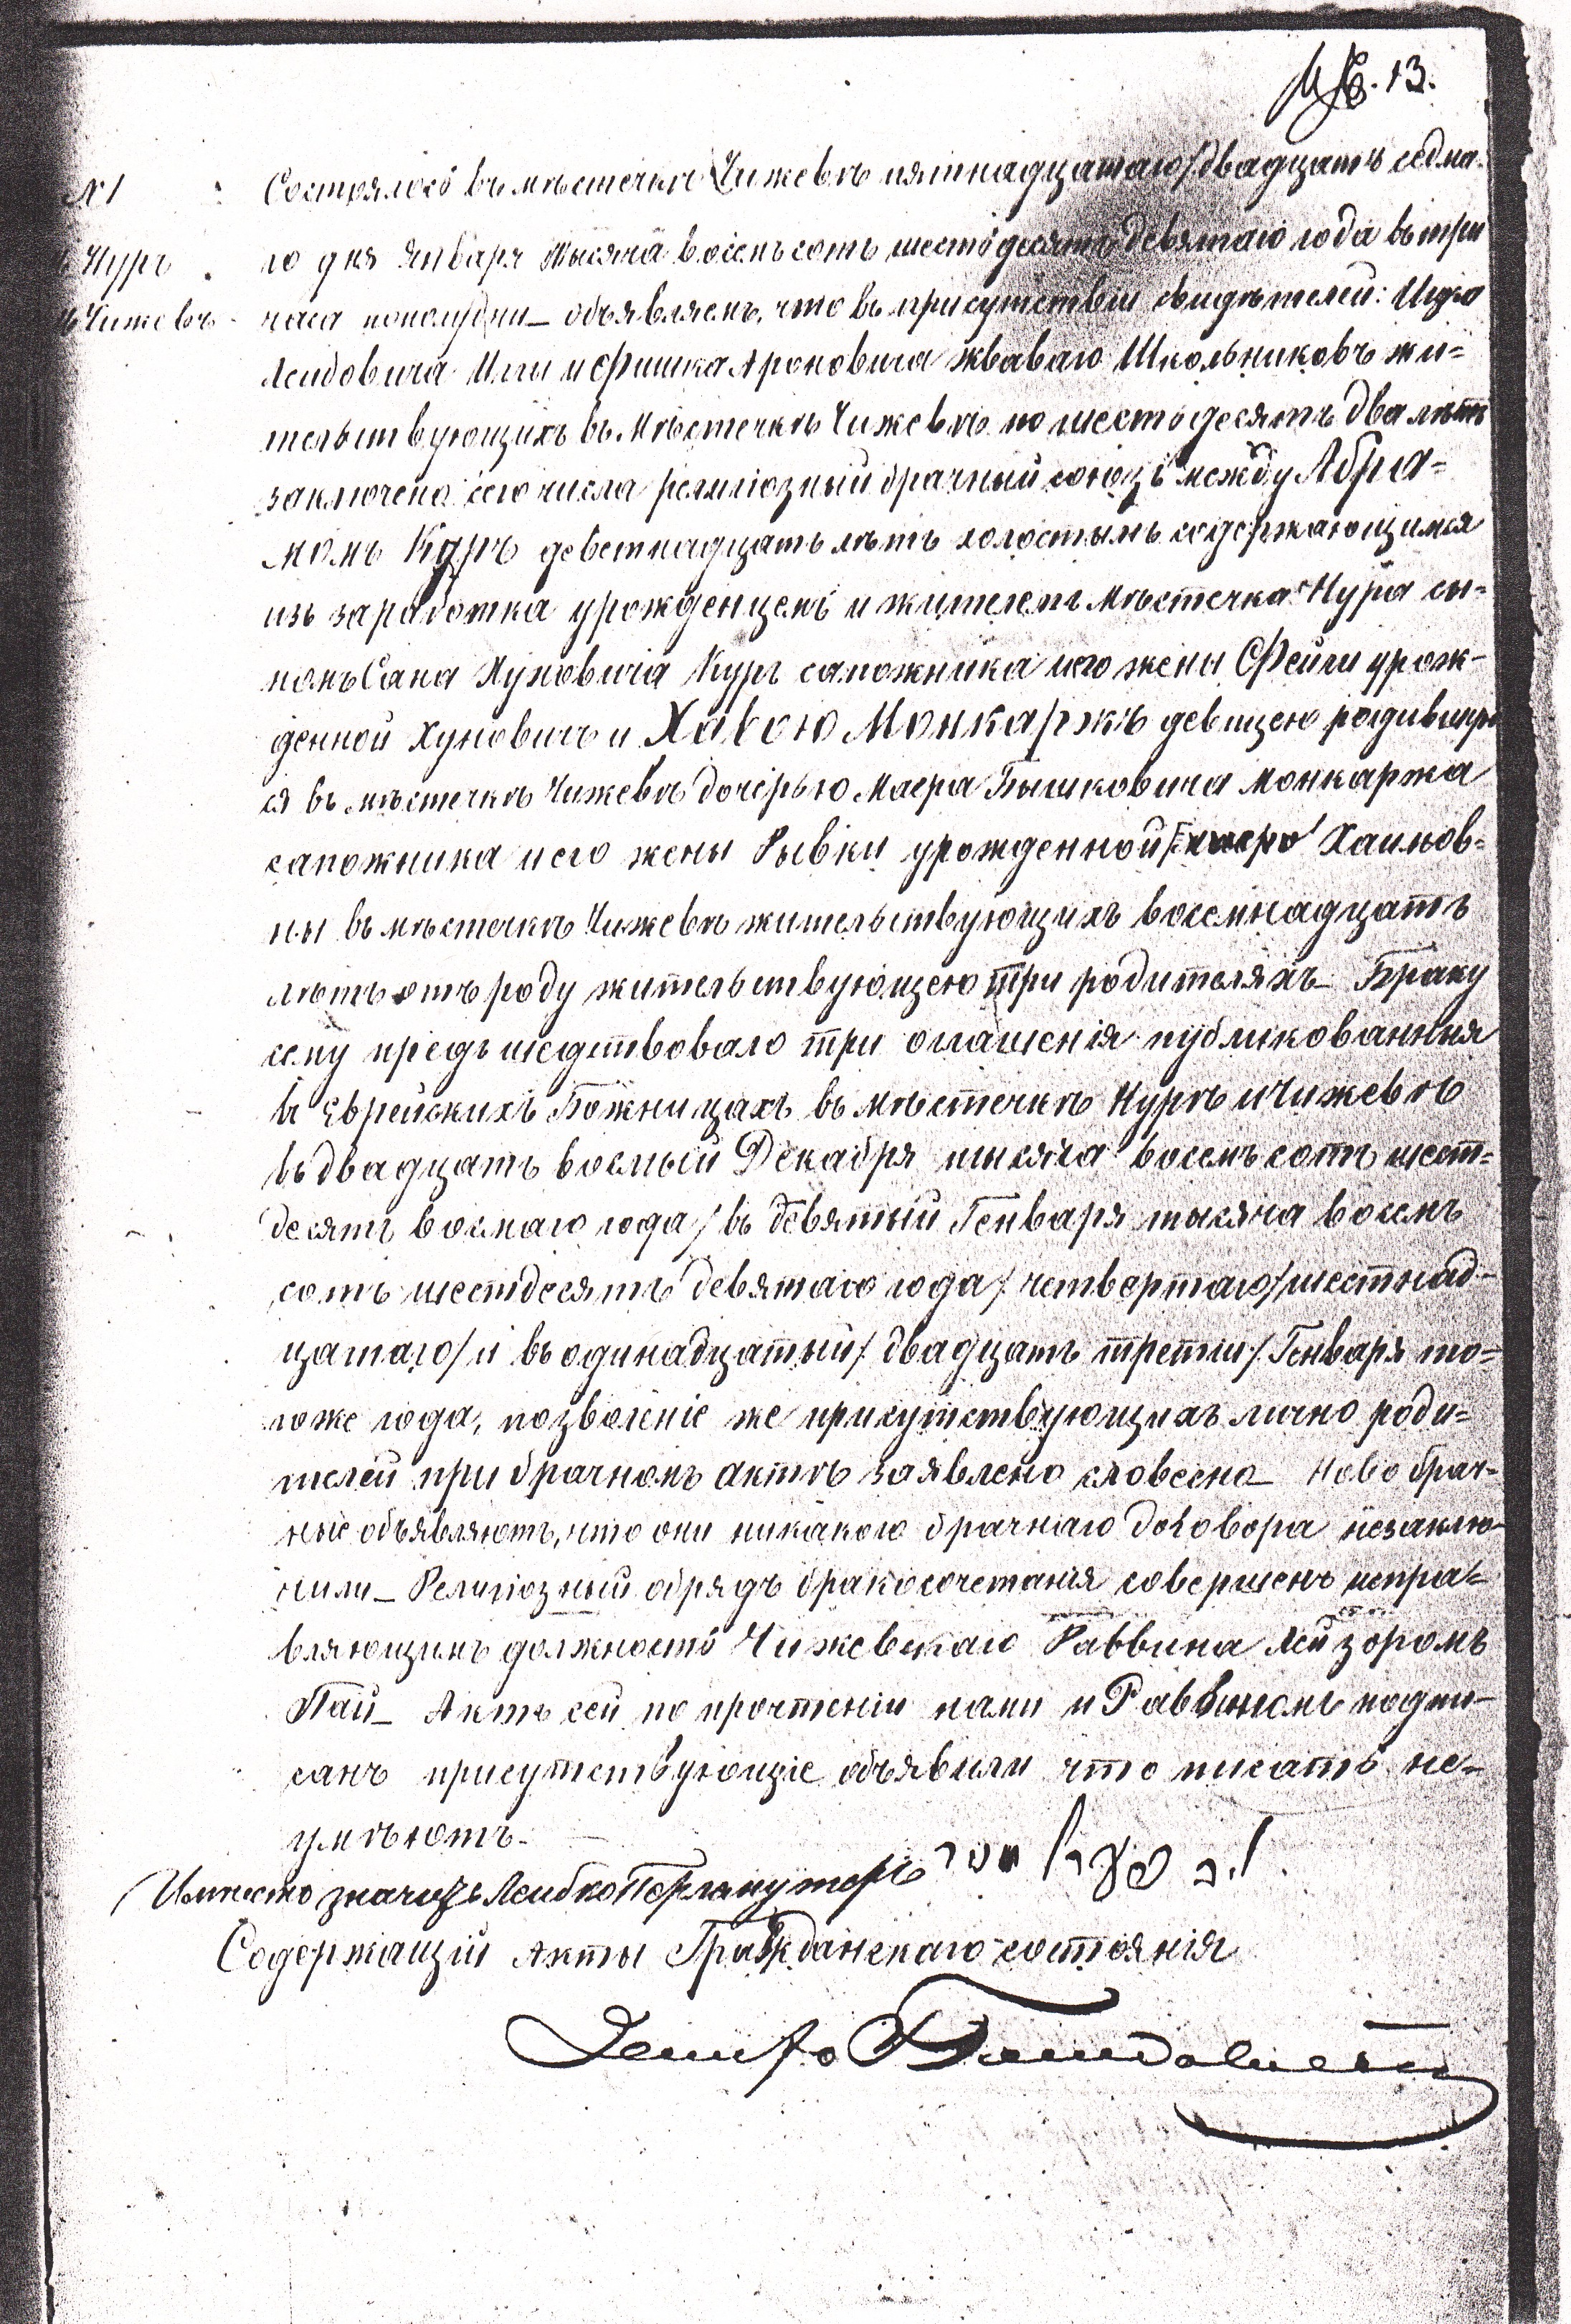 13.
№ 1
Состоялось въ мѣстечкѣ Чижевѣ пятнадцатаго/двадцать седма-
Нуръ
го дня Января тысяча восемьсотъ шестьдесятъ девятаго года въ три
Чижевъ
часа пополудни_ объявляемъ, что въ присутствіи свидѣтелей: Ицко
Лейбовича и Фишка Ароновича Школьниковъ жи=
тельствующихъ въ Мѣстечкѣ Чижевѣ по шестьдесятъ два лѣтъ
заключенъ сего числа религіозный брачный союзъ между Абра=
момъ Куръ девятнадцать лѣтъ холостымъ содержающимся
изъ заработка урожденцемъ и жителемъ мѣстечка Нура сы=
номъ Хуновича сапожника и его жены Фейги урож-
денной Хуновичъ и Хавою Монкаржъ девицею родившую
ся въ мѣстечкѣ Чижевѣ дочерью Маера Монкаржа
сапожника и его жены Рывки урожденной Хаимов=
ны въ мѣстечкѣ Чижевѣ жительствующихъ восемнадцать
лѣтъ отъ роду жительствующею при родителяхъ_ Браку
сему предъшедствовало три оглашенія публикованныя
въ Еврейскихъ Божницахъ въ мѣстечкѣ Нурѣ и Чижевѣ
въ двадцать восмый Декабря тысяча восемьсотъ шест=
десятъ восмаго года/въ девятый Генваря тысяча восемъ
сотъ шестдесятъ девятаго года/ четвертаго/шестнад-
цатаго/ и въ одинадцатый/ двадцать третій/ Генваря то=
гоже года, позволеніе же присутствующихъ лично роди=
телей при брачномъ актѣ заявлено словесно_ Новобрач-
ные объявляютъ, что они никакого брачнаго договора незаклю-
чили_ Религіозный обрядъ бракосочетанія совершенъ испра=
вляющимъ должность Чижевскаго Раввина Лейзоромъ
Пай_ Актъ сей по прочтеніи нами и Раввиномъ подпи-
санъ присутствующіе объявили что писать не=
умѣютъ.
значитъ Лейбко
Содержащій Акты Гражданскаго состоянія